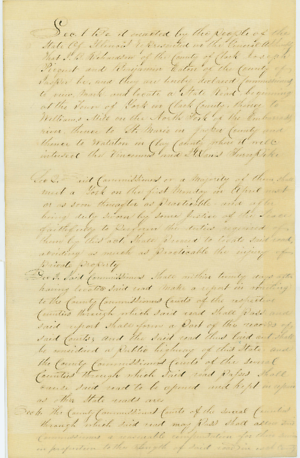 Sec 1 Be it enacted by the People of the
State of Illinois Represented in the General Assembly
That of the County of Clark Joseph
and Benjamin of the County of
Jasper be and they are hereby declared
to view Mark and locate a State Road beginning
at the Town of York in Clark County thence to
Williams Mill on the North Fork of the Embarrass
river thence to St Marie in Jasper County and
thence to Maysville in Clay County where it will
intersect the Vincennes and St Louis
Sec 2 Said Commissioners or a Majority of them shall
meet at York on the first Monday in April next
or as soon thereafter as Practicable and after
being duly sworn by some Justice of the Peace
faithfully to Perform the duties required of
them by this act shall Proceed to locate said road
avoiding as much as Practicable the injury of
Private Property
Sec 3 Said Commissioners shall within twenty days after
having located said road make a report in writing
to the County Commissioners Courts of the respective
Counties through which said road shall Pass and
said report shall form a Part of the records of
said Courts and the said road thus laid out shall
be considered a Public highway of this State and
the County Commissioners Courts of the several
Counties through which said road Passes shall
cause said road to be opened and kept in repair
as other State roads are
Sec 4 The County Commissioners Courts of the several Counties
through which said road may Pass shall allow said
Commissioners a reasonable compensation for their
in proportion to the length of said road in each County